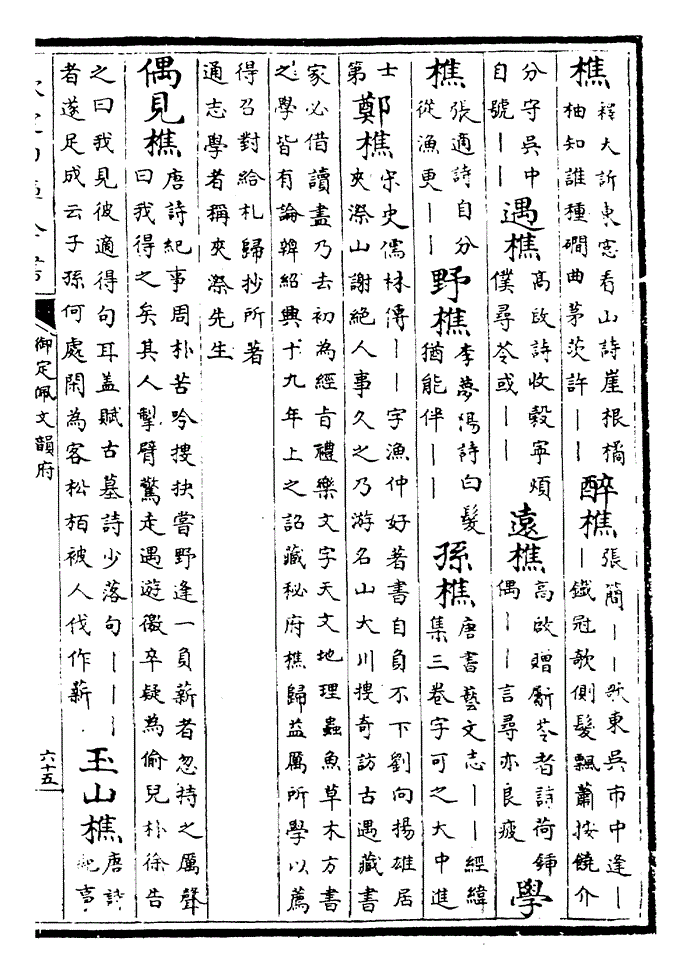 樵釋大訢東窓看山詩崖根橘柚知誰種磵曲茅茨許丨丨醉樵張簡丨丨歌東吳市中逢丨丨鐵冠歌側髮飄蕭按鐃介
分守吳中自號丨丨遇樵高啟詩收穀寧煩僕尋苓或丨丨遠樵高啟贈斸苓者詩荷鍤偶丨丨言尋亦良疲學
樵張適詩自分從漁更丨丨野樵李夢陽詩白髮猶能伴丨丨孫樵唐書藝文志丨丨經緯集三卷字可之大中進
士第鄭樵宋史儒林傳丨丨字漁仲好著書自負不下劉向揚雄居夾漈山謝絕人事久之乃游名山大川搜奇訪古遇藏書
家必借讀盡乃去初為經旨禮樂文字天文地理蟲魚草木方書之學皆有論辨紹興十九年上之詔藏秘府樵歸益厲所學以薦
得召對給札歸抄所著通志學者稱夾漈先生
偶見樵唐詩紀事周朴苦吟搜抉嘗野逢一負薪者忽持之厲聲曰我得之矣其人掣臂驚走遇遊徼卒疑為偷兒朴徐告
之曰我見彼適得句耳蓋賦古墓詩少落句丨丨丨者遂足成云子孫何處閑為客松柏被人伐作薪玉山樵唐詩紀事
欽定四庫全書
御定佩文韻府
六十五